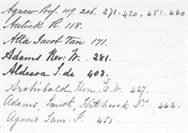 Agnew Prof. 49. 206. 271. 420. 451. 460
Aulick R. 118.
Alla Jacob Van 171.
Adams Rev. W. 281.
Aldecoa J. de 403.
Archibald Hon. E. W. 427.
Adams, Smith, Hitchcock Drs 442.
Agnew Sam. J. 451.